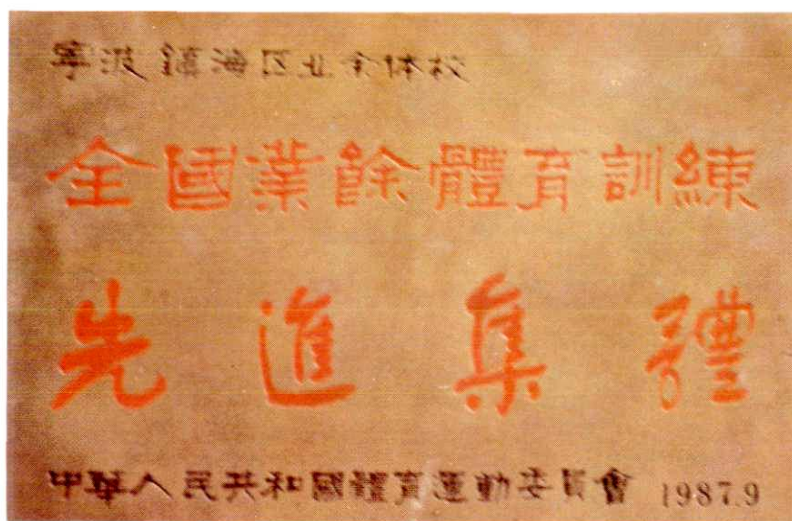 寧波鎮海区业余体校
全國業餘體育訓練
先進集體
中華人民共和國體育運動委員會 1987.9